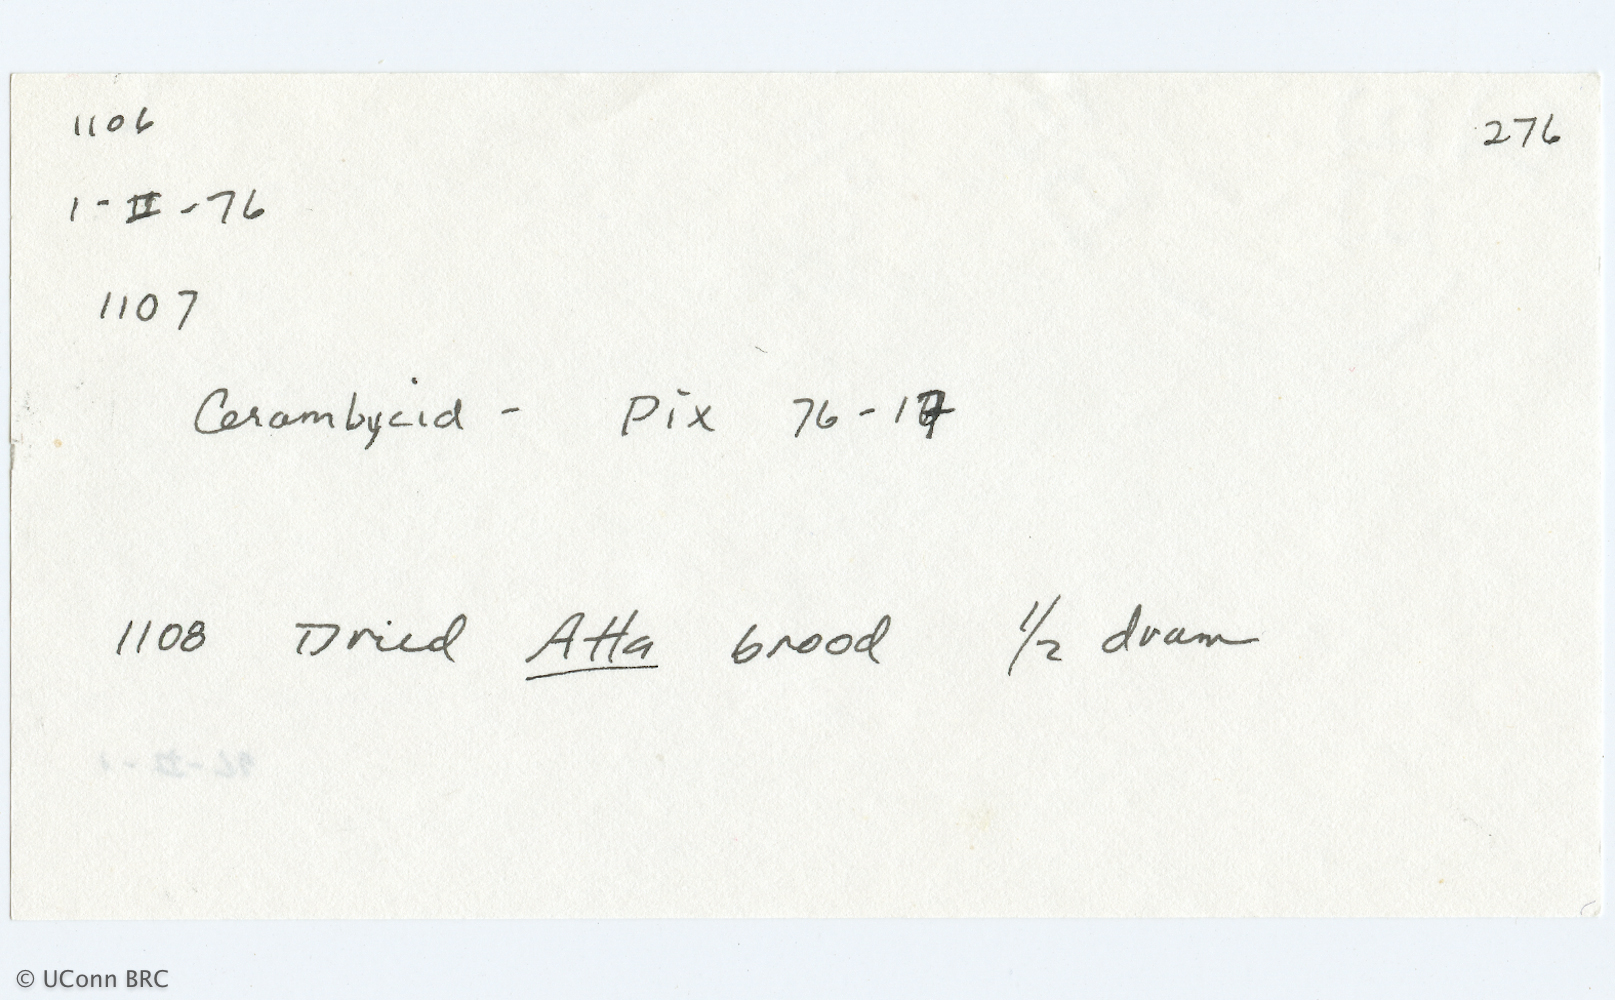 1106 276
1-II-76
1107
Cerambycid - Pix 76-17
1108 Dried Atta brood 1/2 dram
© UConn BRC